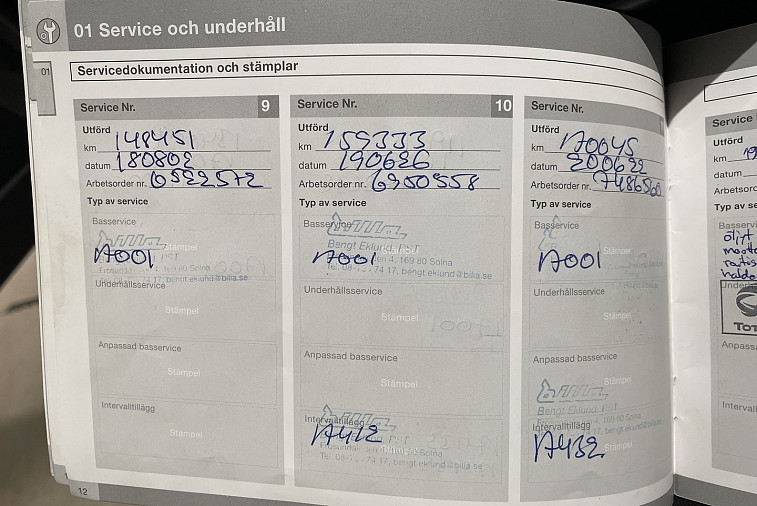 01 Service och underhåll
01
Servicedokumentation och stämplar
Service Nr. 9
Utförd
km 148451
datum 180802
Arbetsorder nr. 6522572
Typ av service
Basservice
Stämpel
17001
169 80 Solna
Underhållsservice
Stämpel
Anpassad basservice
Stämpel
Intervalltillägg
Stämpel
Service Nr. 10
Utförd
km 159333
datum 190626
Arbetsorder nr. 6950558
Typ av service
Basservice
Bilia
Bengt Eklund, PST
17001
4, 169 80 Solna
74 17, bengt.eklund@bilia.se
Underhållsservice
Stämpel
Anpassad basservice
Stämpel
Bilia
Intervalltillägg
17412
169 80 Solna
74 17, bengt.eklund@bilia.se
Service Nr.
Utförd
km 170045
datum 200622
Arbetsorder nr. 7486560
Typ av service
Basservice
Stämpel
17001
Underhållsservice
Stämpel
Anpassad basservice
Stämpel
Bilia
Bengt Eklund, PST
Intervalltillägg
Stämpel
17432
12
Service
Utförd
km 19
datum
Arbetsord
Typ av se
Basservi
Underh
TOT
Anpass
Intervall